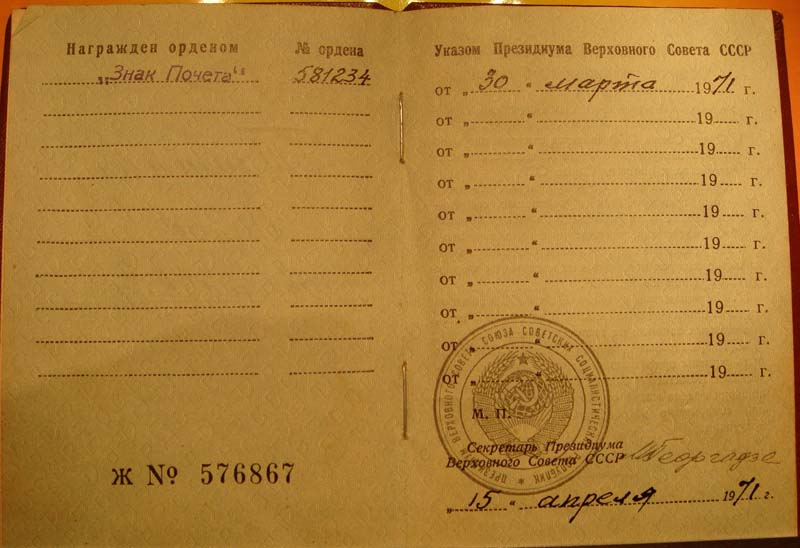 Награжден орденом
№ ордена
„Знак Почета“
581234
Ж № 576867
Указом Президиума Верховного Совета СССР
от „ 30 “ марта 1971 г.
от „ “ 19 г.
от „ “ 19 г.
от „ “ 19 г.
от „ “ 19 г.
от „ “ 19 г.
от „ “ 19 г.
от „ “ 19 г.
от „ “ 19 г.
от „ “ 19 г.
ПРЕЗИДИУМ ВЕРХОВНОГО СОВЕТА СОЮЗА СОВЕТСКИХ СОЦИАЛИСТИЧЕСКИХ РЕСПУБЛИК
М. П.
Секретарь Президиума
Верховного Совета СССР
М Георгадзе
„ 15 “ апреля 1971 г.